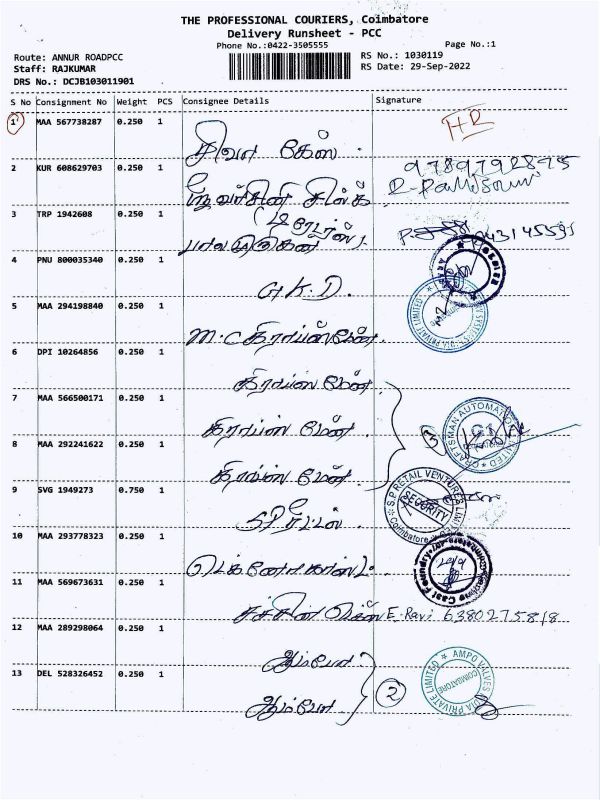 THE PROFESSIONAL COURIERS, Coimbatore
Delivery Runsheet - PCC
Phone No.:0422-3505555
Page No.:1
Route: ANNUR ROADPCC
RS No.: 1030119
Staff: RAJKUMAR
RS Date: 29-Sep-2022
DRS No.: DCJB103011901
S No Consignment No Weight PCS Consignee Details Signature
1 MAA 567738287 0.250 1 HR
சிவா கேஸ்
2 KUR 608629703 0.250 1 9789792875
சில்க்
3 TRP 1942608 0.250 1
4 PNU 800035340 0.250 1
G K D.
5 MAA 294198840 0.250 1
M.C கிராப்ஸ்மேன்.
6 DPI 10264856 0.250 1
கிராப்ஸ் மேன்.
7 MAA 566500171 0.250 1
கிராப்ஸ் மேன்.
CRAFTSMAN AUTOMATION LIMITED
3
8 MAA 292241622 0.250 1
கிராப்ஸ் மேன்.
9 SVG 1949273 0.750 1
S P RETAIL VENTURES LIMITED
SECURITY
Coimbatore
SP ரீட்டல்.
10 MAA 293778323 0.250 1
11 MAA 569673631 0.250 1
E-Ravi 6380275818
12 MAA 289298064 0.250 1
ஆம்போ
13 DEL 528326452 0.250 1
2
AMPO VALVES INDIA PRIVATE LIMITED
COIMBATORE
ஆம்போ